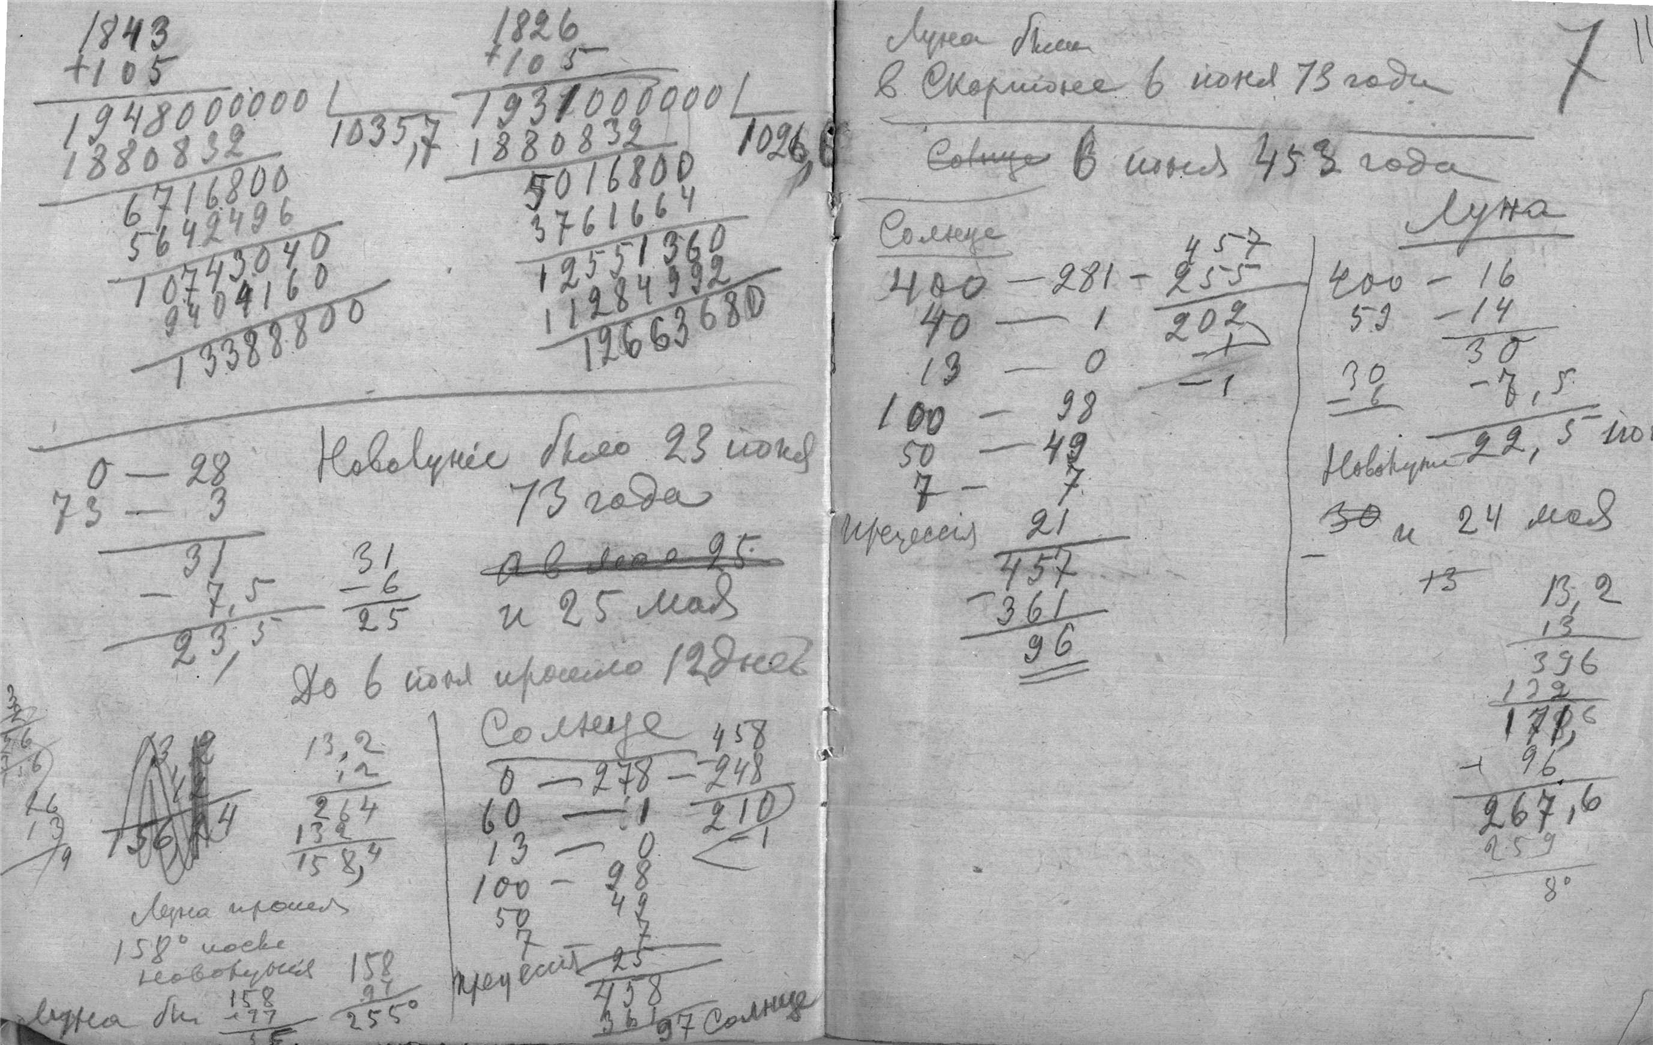 1843
+105
1948000000
1035,7
1880832
6716800
5642496
10743040
9404160
13388800
1826
+105
1931000000
1026,6
1880832
5016800
3761664
12551360
11284992
12663680
0 — 28
73 — 3
31
— 7,5
23,5
31
— 6
25
Новолуніе было 23 іюня
73 года
а в мае 25
и 25 мая
До 6 іюня прошло 12 дней
13,2
12
264
132
158,4
Луна прошла
158° после
новолунія
158
97
255°
Луна бы
158
+97
Солнце
0 — 278 — 248
458
210
— 1
60 — 1
13 — 0
100 — 98
50 49
7 7
прецессія 25
458
361
97 Солнце
26
13
9
7
Луна была
в Скорпионе 6 июня 73 года
Солнце 6 июня 453 года
Солнце
400 — 281 — 255
457
202
— 1
— 1
40 — 1
13 — 0
100 — 98
50 — 49
7 — 7
прецессія 21
457
— 361
96
Луна
400 — 16
53 — 14
30
— 7,5
22,5
30
— 6
30 и 24 мая
+3
13,2
13
396
132
171,6
+ 96
267,6
259
8°